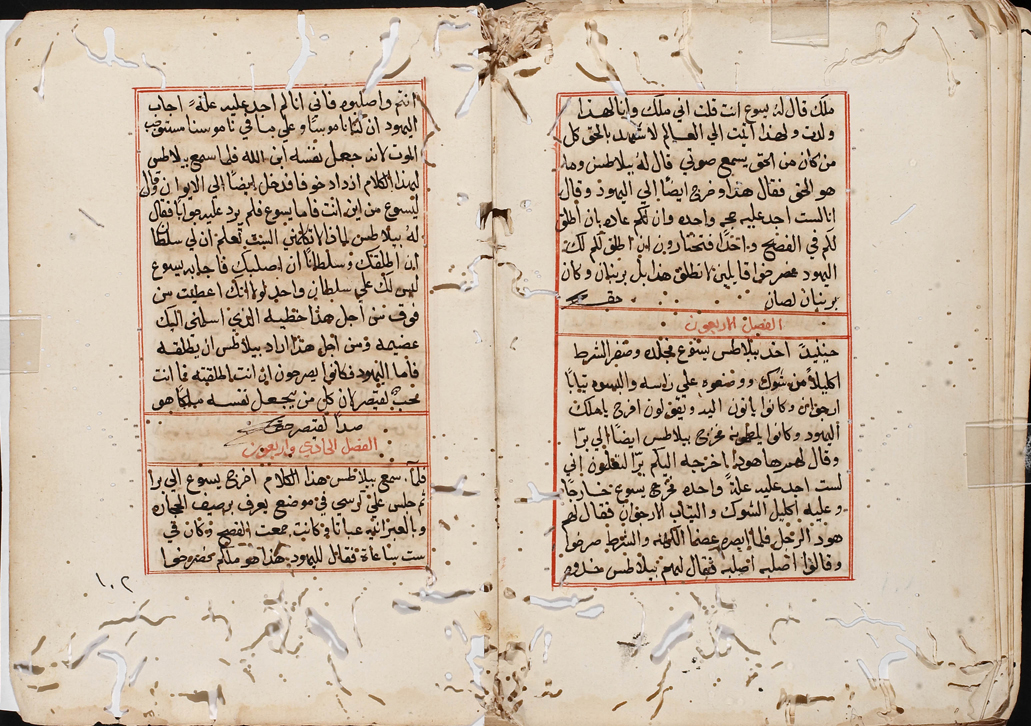 ملك قال له يسوع انت قلت اني ملك وانا لهذا
ولدت ولهذا اتيت الي العالم لاشهد بالحق كل
من كان من الحق يسمع صوتي قال له بيلاطس وما
هو الحق فقال هذا وخرج ايضا الي اليهود وقال
انا لست اجد عليه عله واحده وان لكم عاده بان اطلق
لكم في الفصح واحدا فتختارون ان اطلق لكم ملك
اليهود فصرخوا قايلين لا تطلق هذا بل بربنان وكان
بربنان لصان
الفصل الاربعون
حينيذ اخد بيلاطس يسوع فجلده وضفر الشرط
اكليلا من شوك ووضعوه علي راسه والبسوه ثيابا
ارجوان وكانوا ياتون اليه ويقولون افرح يا ملك
اليهود وكانوا يلطمونه فخرج بيلاطس ايضا الي برا
وقال لهم ها هودا اخرجه اليكم برا لتعلمون اني
لست اجد عليه علة واحده فخرج يسوع خارجا
وعليه اكليل الشوك والثياب الارجوان فقال لهم
هود الرجل فلما ابصره عضما الكهنه والشرط صرخوا
وقالوا اصلبه اصلبه فقال لهم بيلاطس خدوه
انتم واصلبوه فاني انا لم اجد عليه علة اجاب
اليهود ان لنا ناموسا وعلي ما في ناموسنا مستوجب
الموت لانه جعل نفسه ابن الله فلما سمع بيلاطس
لهذا الكلام ازداد خوفا فدخل ايضا الي الايوان وقال
ليسوع من اين انت فاما يسوع فلم يرد عليه جوابا فقال
له بيلاطس لماذا لا تكلمني الست تعلم ان لي سلطانا
ان اطلقك وسلطانا ان اصلبك فاجابه يسوع
ليس لك علي سلطاني واحد لولا انك اعطيت من
فوق من اجل هذا خطية الذي اسلمني اليك
عضيمه ومن اجل هذا اراد بيلاطس ان يطلقه
فاما اليهود فكانوا يصرخون ان انت اطلقته فما انت
محب لقيصر لان كل من يجعل نفسه ملكا هو
ضدا لقيصر
الفصل الحادي واربعون
فلما سمع بيلاطس هذا الكلام اخرج يسوع الي برا
ثم جلس علي كرسي في موضع يعرف برصيف الحجاره
وبالعبرانيه كانت جمعت الفصح وكان في
ست ساعات فقال لليهود هذا هو ملككم فصرخوا
١٠٢